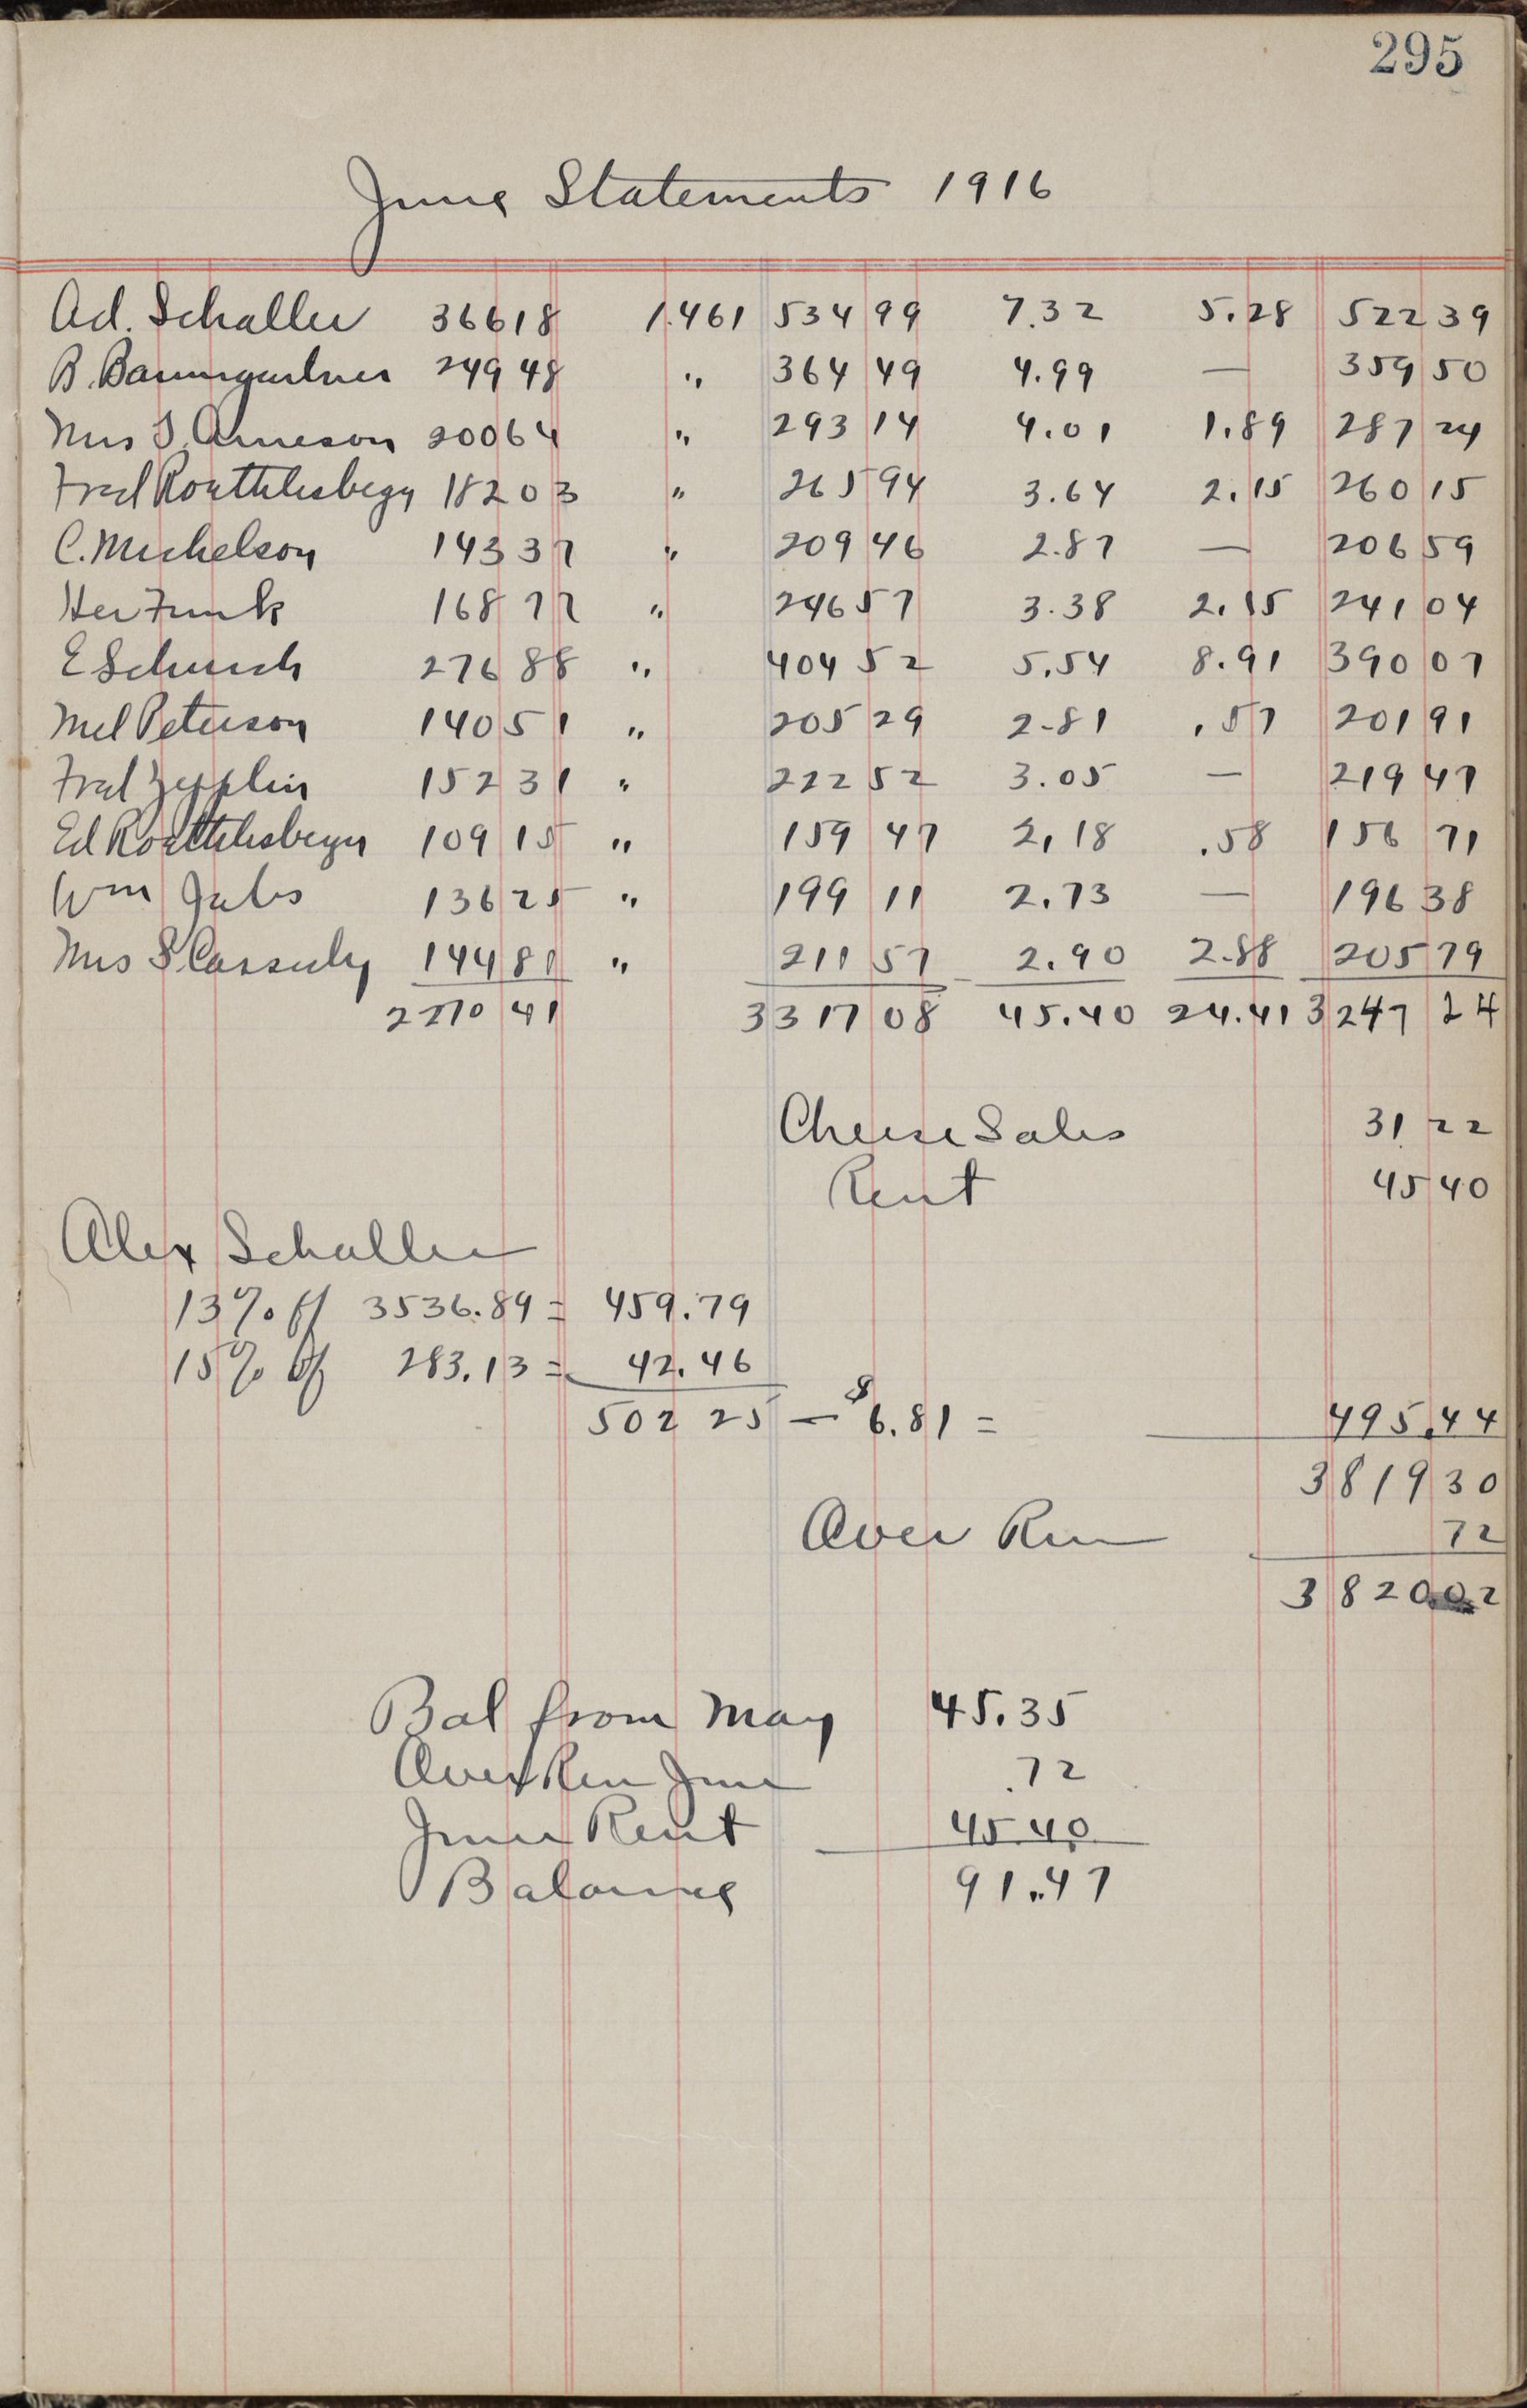 295
June Statements 1916
Ad. Schaller 36618 1.461 534 99 7.32 5.28 522 39
B. Baumgartner 24948 " 364 49 4.99 — 359 50
Mrs S. Arneson 20064 " 293 14 4.01 1.89 287 24
Fred Roethlisbergr 18203 " 265 94 3.64 2.15 260 15
C. Michelson 14337 " 209 46 2.87 — 206 59
Her Funk 16877 " 246 57 3.38 2.15 241 04
E Schurch 27688 " 404 52 5.54 8.91 390 07
Mel Peterson 14051 " 205 29 2.81 .57 201 91
Fred Zepplin 15231 " 222 52 3.05 — 219 47
Ed Roethlisbergr 10915 " 159 47 2.18 .58 156 71
Wm Jabs 13625 " 199 11 2.73 — 196 38
Mrs S. Cassidy 14481 " 211 57 2.90 2.88 205 79
2270 41 3317 08 45.40 24.41 3247 24
Cheese Sales 31 22
Rent 45 40
Alex Schaller
13% of 3536.89 = 459.79
15% of 283.13 = 42.46
502 25 — $6.81 = 495.44
3819 30
Over Run 72
3820.02
Bal from May 45.35
Over Run June .72
June Rent 45 40
Balance 91.47